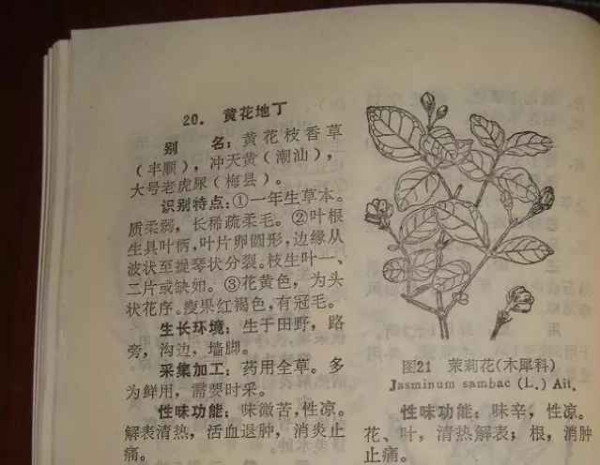 20. 黄花地丁
别 名：黄花枝香草
（丰顺），冲天黄（潮汕），
大号老虎尿（梅县）。
识别特点：①一年生草本。
质柔弱，长稀疏柔毛。②叶根
生具叶柄，叶片卵圆形，边缘从
波状至提琴状分裂。枝生叶一、
二片或缺如。③花黄色，为头
状花序。瘦果红褐色，有冠毛。
生长环境：生于田野，路
旁，沟边，墙脚。
采集加工：药用全草。多
为鲜用，需要时采。
性味功能：味微苦，性凉。
解表清热，活血退肿，消炎止
痛。
图21 茉莉花(木犀科)
Jasminum sambac (L.) Ait.
性味功能：味辛，性凉。
花、叶，清热解表；根，消肿
止痛。